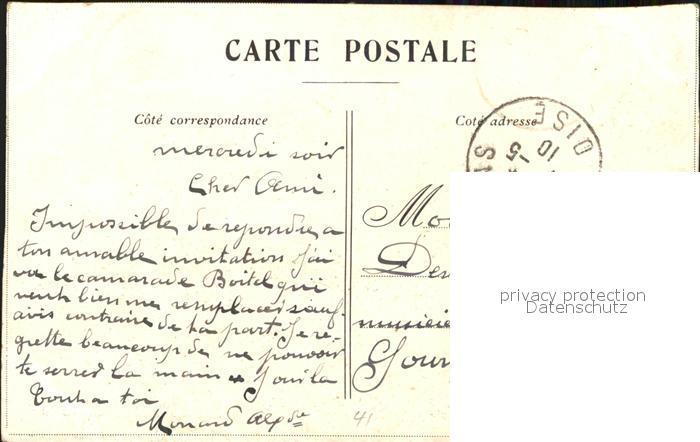 CARTE POSTALE
Côté correspondance
Coté adresse
OISE
10 -5
mercredi soir
Cher Ami.
Impossible de repondre a
ton amable invitation j'ai
vu le camarade Boitel qui
veut bien me remplacer sauf
avis contraire de ta part. Je re-
grette beaucoup de ne pouvoir
te serrer la main
Tout a toi
Monard Alexdre
Mo
Des
musicie
Gour
privacy protection
Datenschutz
41